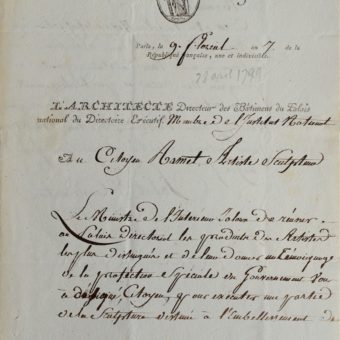 Paris, le 9 floreal an 7. de la
République française, une et indivisible.
28 avril 1799
L'ARCHITECTE Directeur des Bâtimens du Palais
national du Directoire Exécutif. Membre de l'Institut National
Au Citoyen Ramet Artiste Sculpteur
Le Ministre de l'Interieur jaloux de réunir
au Palais Directorial les productions des Artistes
les plus distingués et de leur donner un temoignage
de la protection spéciale du Gouvernement Vous
a designé, Citoyen, pour executer une partie
de la Sculpture destinée à l'Embellissement de